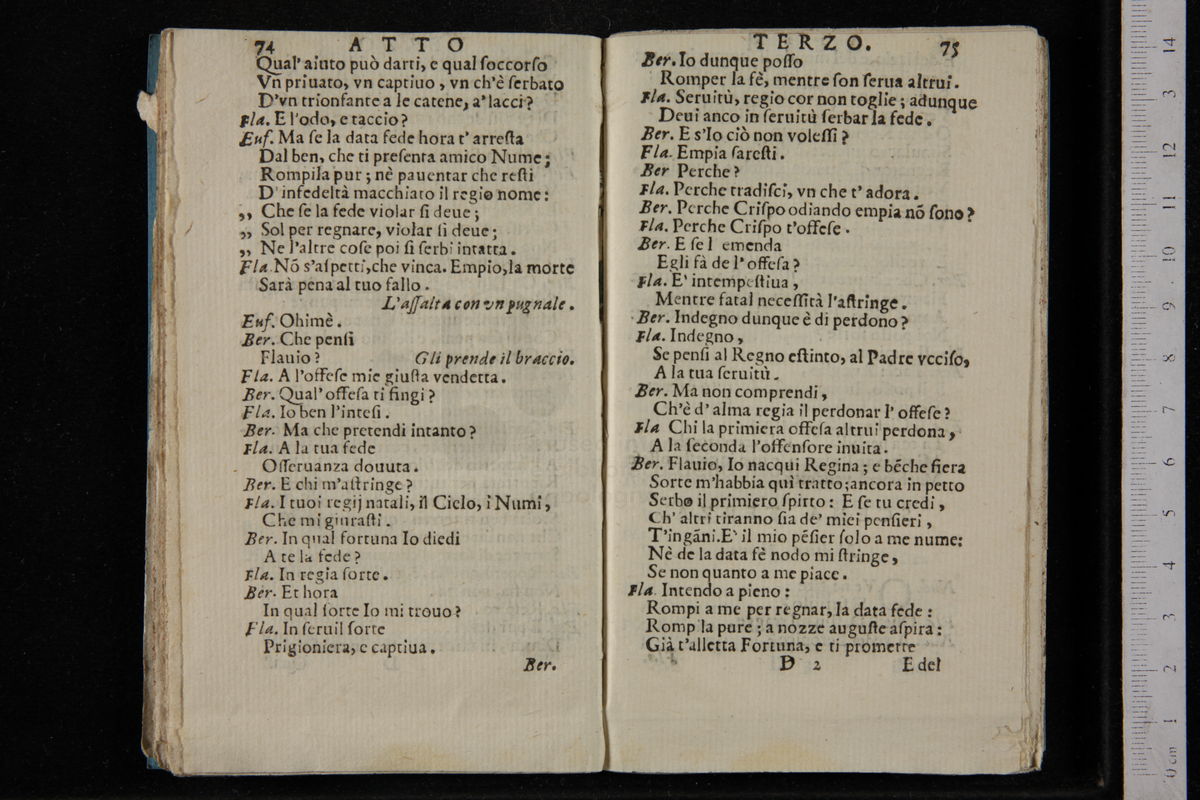 74 ATTO
Qual' aiuto può darti, e qual ſoccorſo
Vn priuato, vn captiuo, vn ch'è ſerbato
D'vn trionfante a le catene, a' lacci?
Fla. E l'odo, e taccio?
Euf. Ma ſe la data fede hora t' arreſta
Dal ben, che ti preſenta amico Nume;
Rompila pur; nè pauentar che reſti
D' infedeltà macchiato il regio nome:
„ Che ſe la fede violar ſi deue;
„ Sol per regnare, violar ſi deue;
„ Ne l'altre coſe poi ſi ſerbi intatta.
Fla. Nõ s'aſpetti, che vinca. Empio, la morte
Sarà pena al tuo fallo.
L'aſſalta con vn pugnale.
Euf. Ohimè.
Ber. Che penſi
Flauio? Gli prende il braccio.
Fla. A l'offeſe mie giuſta vendetta.
Ber. Qual' offeſa ti fingi?
Fla. Io ben l'inteſi.
Ber. Ma che pretendi intanto?
Fla. A la tua fede
Oſſeruanza douuta.
Ber. E chi m'aſtringe?
Fla. I tuoi regij natali, il Cielo, i Numi,
Che mi giuraſti.
Ber. In qual fortuna Io diedi
A te la fede?
Fla. In regia ſorte.
Ber. Et hora
In qual ſorte Io mi trouo?
Fla. In ſeruil ſorte
Prigioniera, e captiua.
Ber.
TERZO. 75
Ber. Io dunque poſſo
Romper la fè, mentre ſon ſerua altrui.
Fla. Seruitù, regio cor non toglie; adunque
Deui anco in ſeruitù ſerbar la fede.
Ber. E s'Io ciò non voleſſi?
Fla. Empia ſareſti.
Ber Perche?
Fla. Perche tradiſci, vn che t' adora.
Ber. Perche Criſpo odiando empia nõ ſono?
Fla. Perche Criſpo t'offeſe.
Ber. E ſe l emenda
Egli fà de l' offeſa?
Fla. E' intempeſtiua,
Mentre fatal neceſſità l'aſtringe.
Ber. Indegno dunque è di perdono?
Fla. Indegno,
Se penſi al Regno eſtinto, al Padre vcciſo,
A la tua ſeruitù.
Ber. Ma non comprendi,
Ch'è d' alma regia il perdonar l' offeſe?
Fla Chi la primiera offeſa altrui perdona,
A la ſeconda l'offenſore inuita.
Ber. Flauio, Io nacqui Regina; e bẽche fiera
Sorte m'habbia quì tratto; ancora in petto
Serbo il primiero ſpirto: E ſe tu credi,
Ch' altri tiranno ſia de' miei penſieri,
T'ingãni. E' il mio pẽſier ſolo a me nume:
Nè de la data fè nodo mi ſtringe,
Se non quanto a me piace.
Fla. Intendo a pieno:
Rompi a me per regnar, la data fede:
Romp la pure; a nozze auguſte aſpira:
Già t'alletta Fortuna, e ti promette
D 2 E del